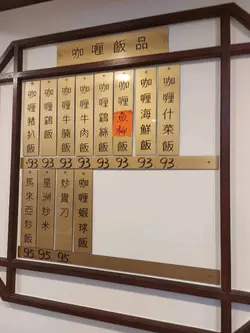 咖喱飯品
咖喱什菜飯
咖喱海鮮飯
咖喱飯
咖喱鷄絲飯
咖喱牛肉飯
咖喱牛腩飯
咖喱鷄飯
咖喱豬扒飯
93 93 93 93 93 93 93
咖喱蝦球飯
炒貴刀
星洲炒米
馬來亞炒飯
95 95 95